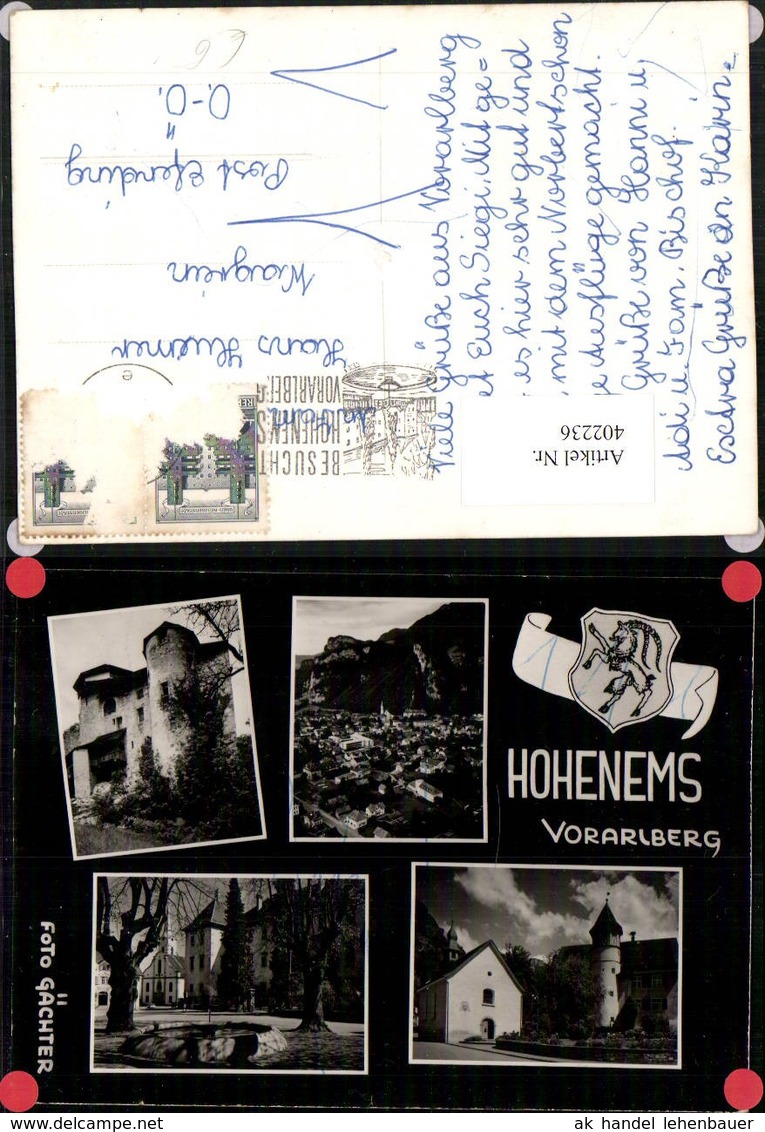 Viele Grüße aus Vorarlberg
et Euch Siegi. Mit ge=
es hier sehr gut und
mit dem Norbertschon
e Ausflüge gemacht.
Grüße von Hanni u,
Adi u. Fam. Bischof.
Esctra Grüße an Karin=
Hans
Wagrein
Post
O.-Ö.
BESUCHT
HOHENEMS
VORARLBERG
Artikel Nr.
402236
HOHENEMS
VORARLBERG
FOTO GÄCHTER
www.delcampe.net
ak handel lehenbauer